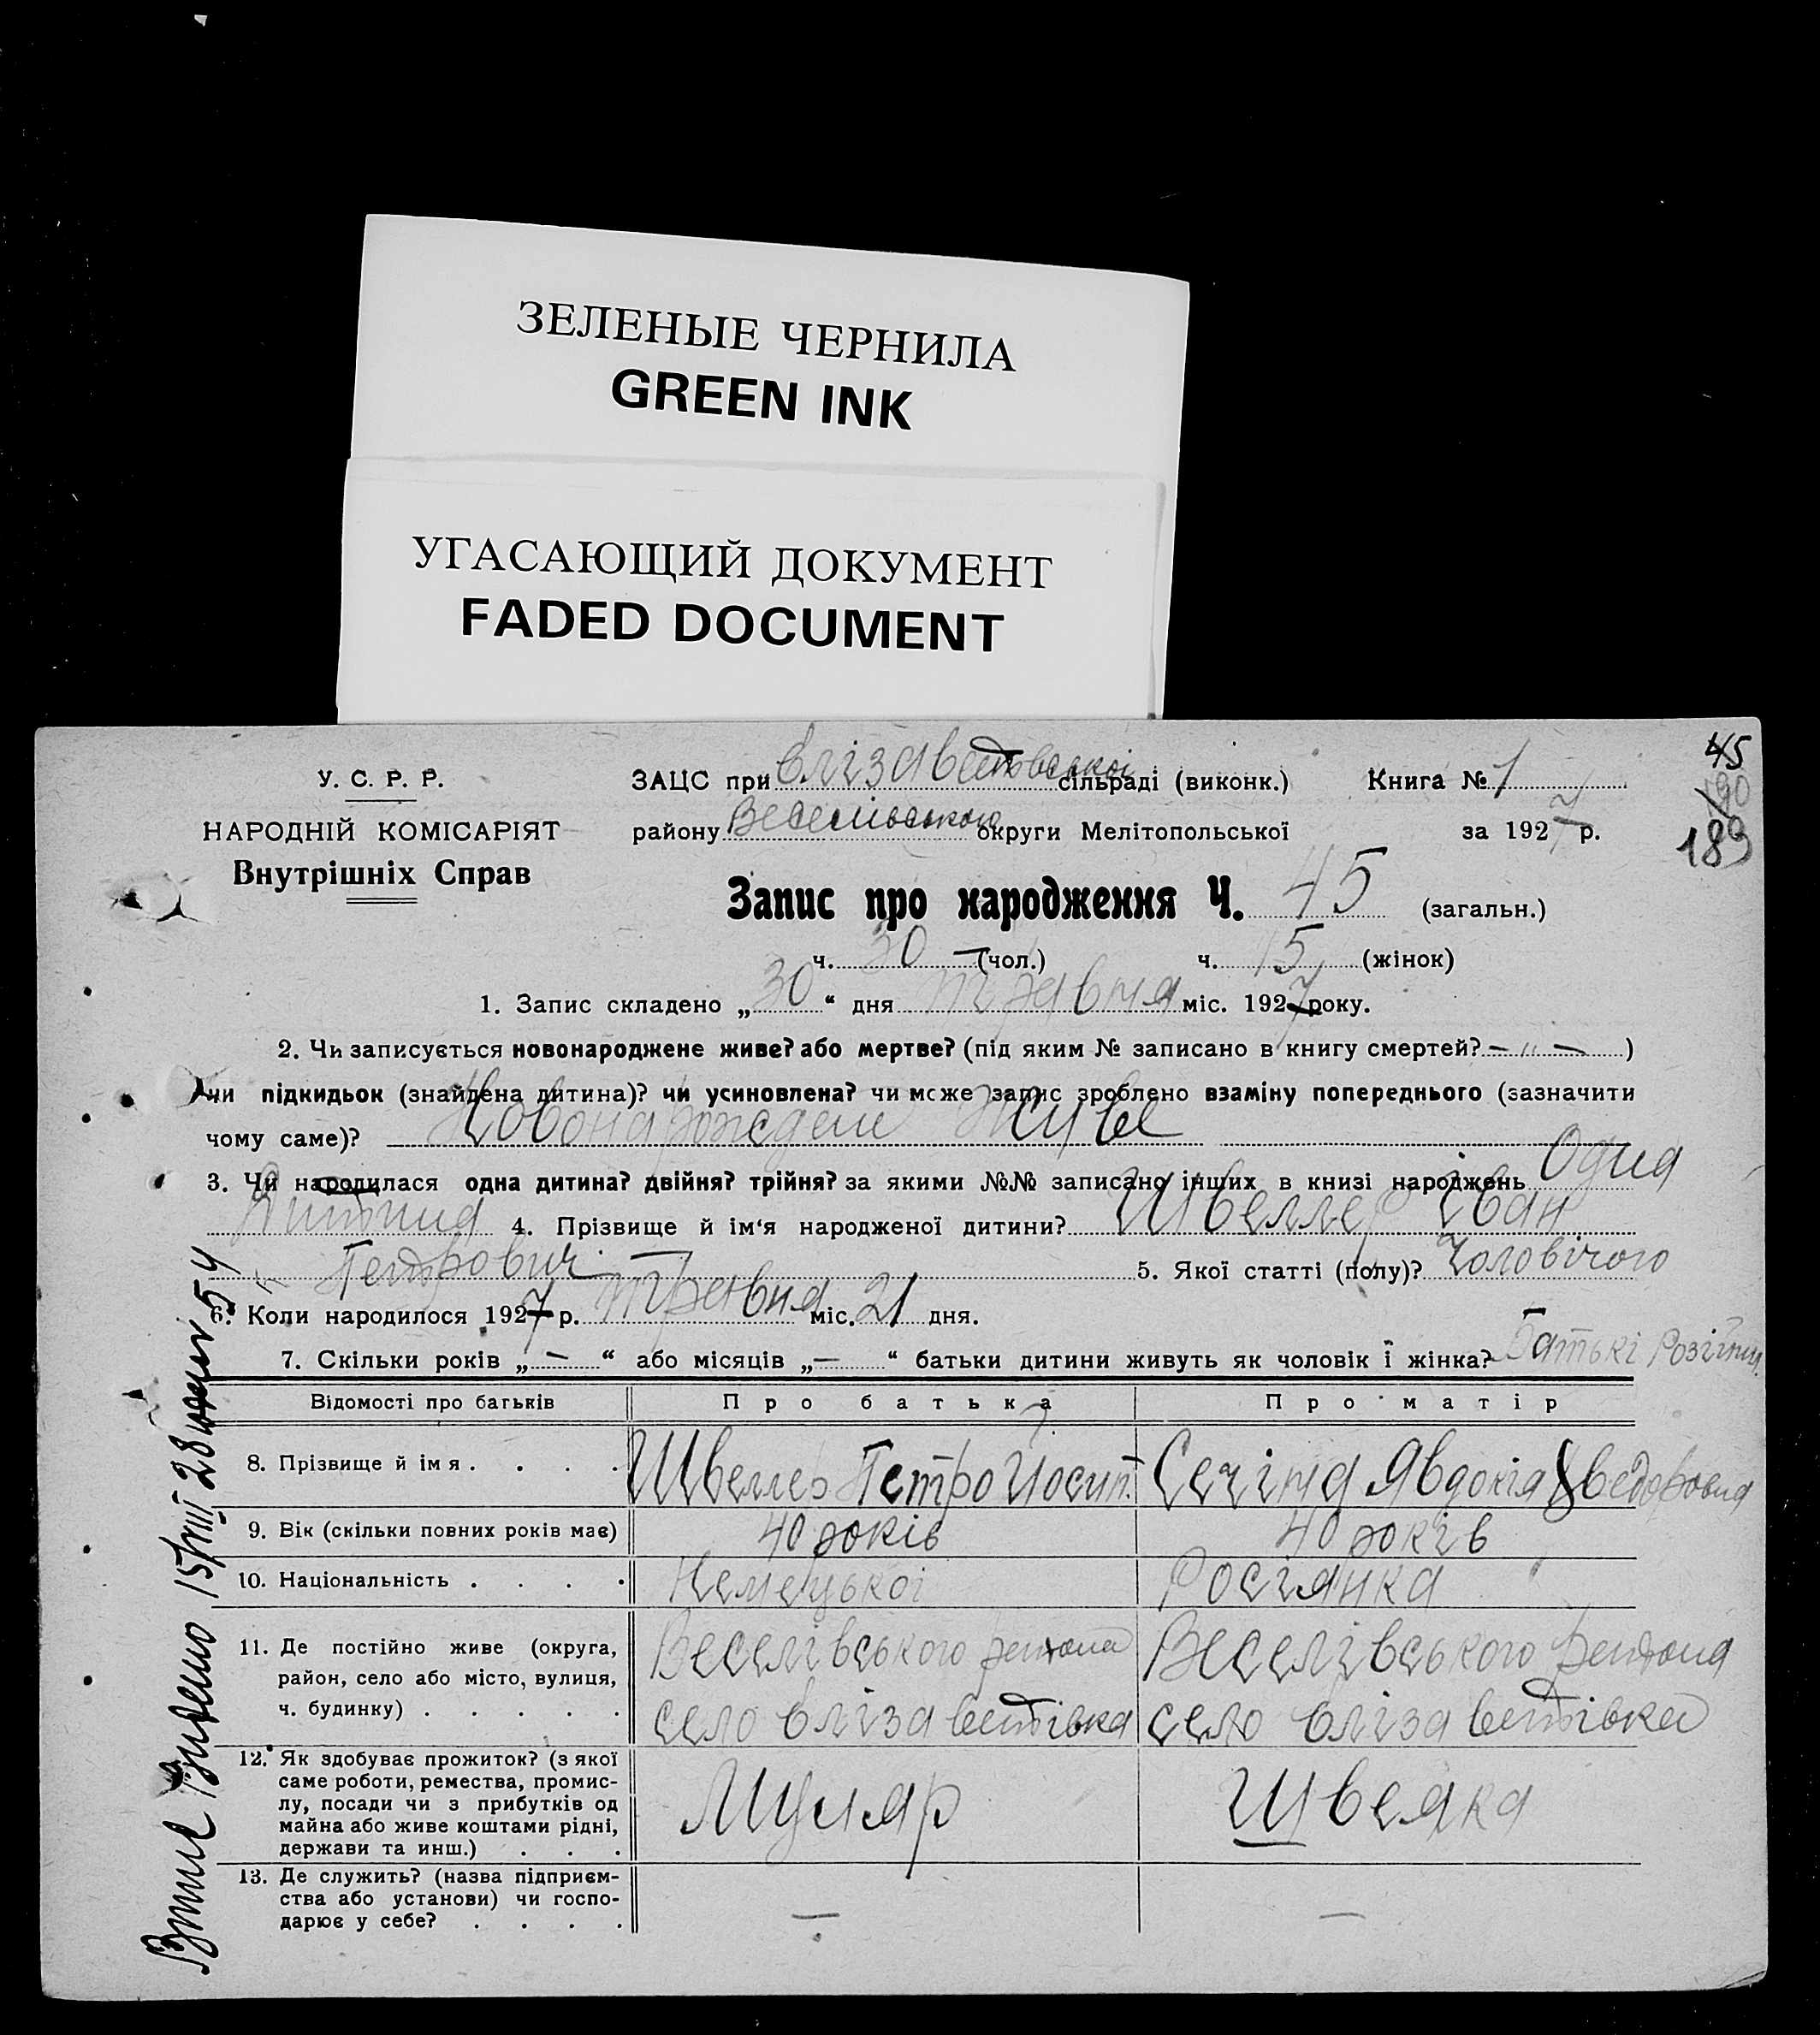 ЗЕЛЕНЫЕ ЧЕРНИЛА
GREEN INK
УГАСАЮЩИЙ ДОКУМЕНТ
FADED DOCUMENT
45
190
189
У. С. Р. Р.
НАРОДНІЙ КОМІСАРІЯТ
Внутрішніх Справ
ЗАЦС при Єлізаветовської сільраді (виконк.) Книга № 1
району Веселівського округи Мелітопольської за 1927 р.
Запис про народження Ч. 45 (загальн.)
ч. 30 (чол.) ч. 15 (жінок)
1. Запис складено „30“ дня травня міс. 1927 року.
2. Чи записується новонароджене живе? або мертве? (під яким № записано в книгу смертей? — „ — )
чи підкидьок (знайдена дитина)? чи усиновлена? чи може запис зроблено взаміну попереднього (зазначити
чому саме)? Новонарождене живе
3. Чи народилася одна дитина? двійня? трійня? за якими №№ записано інших в книзі народжень Одна
дитина 4. Прізвище й ім‘я народженої дитини? Швеллер Іван
Петрович 5. Якої статті (полу)? Чоловічого
6. Коли народилося 1927 р. травня міс. 21 дня.
7. Скільки років „—“ або місяців „—“ батьки дитини живуть як чоловік і жінка? Батькі
Відомості про батьків Про батька Про матір
8. Прізвище й ім я . . . . Швеллер Петро Йосип. Сечіна Явдокія Хведоровна
9. Вік (скільки повних років має) 40 років 40 років
10. Національність . . . . Немецької Росіянка
11. Де постійно живе (округа, район, село або місто, вулиця, ч. будинку) . . . . . Веселівського району село Єлізаветівка Веселівського району село Єлізаветівка
12. Як здобуває прожиток? (з якої саме роботи, ремества, промислу, посади чи з прибутків од майна або живе коштами рідні, держави та инш.) . . . Муляр Швеяка
13. Де служить? (назва підприємства або установи) чи господарює у себе? . . . . — —